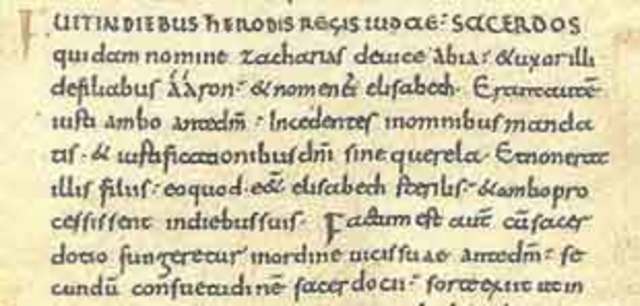 FUITINDIEBUS hERODIS REGIS IUDAE: SACERDOS
quidam nomine zacharias deuice abia: &uxor illi
defiliabus ááron: & nomen ei᾽ elisabeth. Erantautē
iusti ambo antedm̄: Incedentes inomnibus manda
tis. & iustificationibus dm̄i sine querela. Etnonerat
illis filius: eoquod. e&̄ elisabeth sterilis: &ambo pro
cessissent indiebussuis. Factum est aut̄ cū sacer
dotio fungeretur inordine uicissuae antedm̄: se
cundū consuetudinē sacerdotii: sorteexiit utin